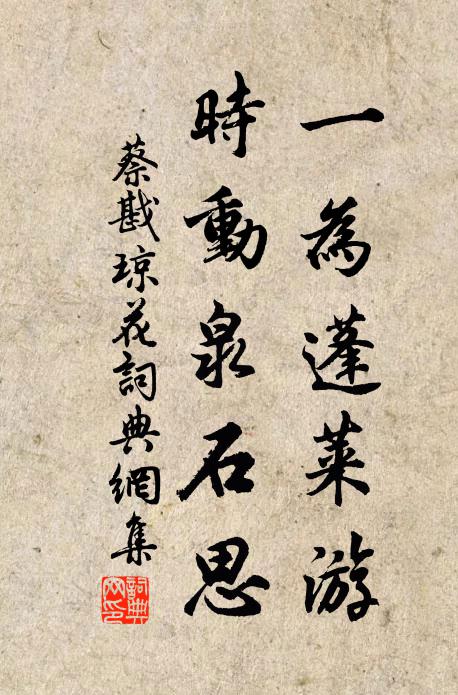 一為蓬萊游
時動泉石思
蔡戡琼花詞典網集
詞典
网印